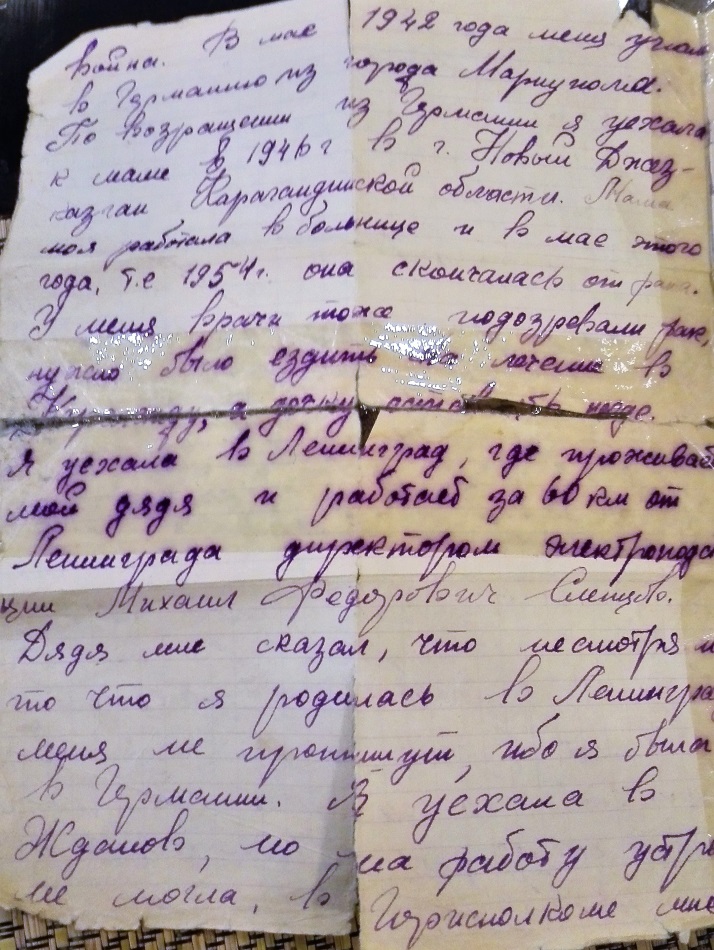 война. В мае 1942 года меня угнали
в Германию из города Мариуполя.
По возращении из Германии я уехала
к маме в 1946 г в г. Новый Джаз-
казган Карагандинской области. Мама
моя работала в больнице и в мае этого
года, т.е 1954 г. она скончалась от рака.
У меня врачи тоже подозревали рак,
нужно было ездить на лечение в
Караганду, а дочку оставить негде.
Я уехала в Ленинград, где проживает
мой дядя и работает за 60 км от
Ленинграда директором электроподстан
ции Михаил Федорович Слепцов.
Дядя мне сказал, что несмотря н
то что я родилась в Ленингра
меня не пропишут, ибо я была
в Германии. Я уехала в
Жданов, но на работу устро
не могла, в Горисполкоме мне